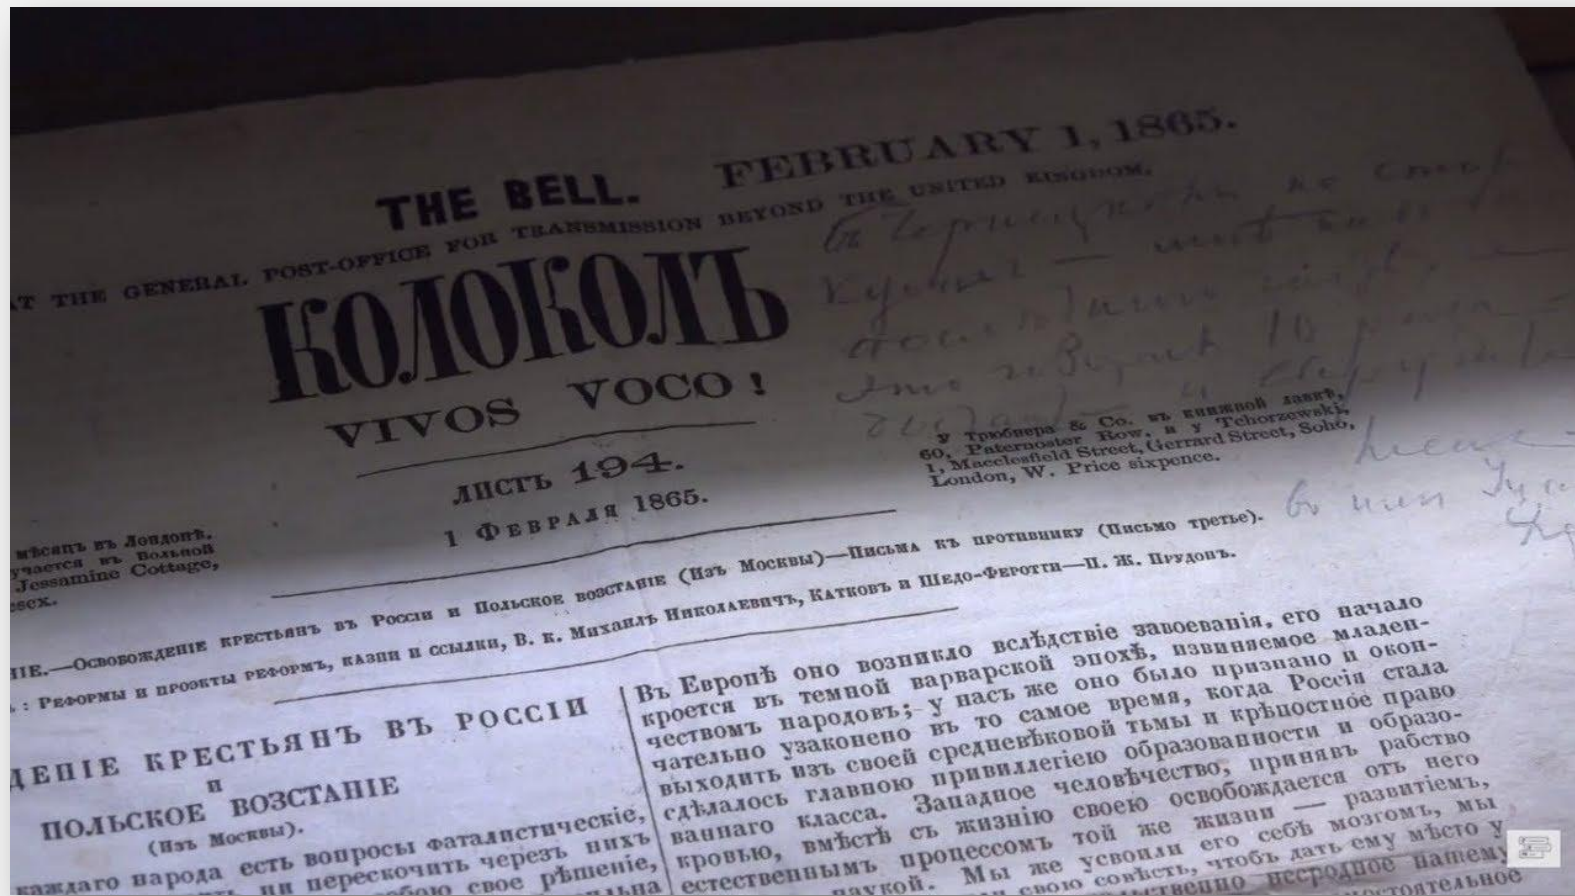 THE BELL. FEBRUARY 1, 1865.
AT THE GENERAL POST-OFFICE FOR TRANSMISSION BEYOND THE UNITED KINGDOM.
КОЛОКОЛЪ
VIVOS VOCO!
ЛИСТЪ 194.
1 ФЕВРАЛЯ 1865.
мѣсяцъ въ Лондонѣ,
въ Вольной
Jessamine Cottage,
у Трюбнера & Co. въ книжной лавкѣ,
60, Paternoster Row, и у Tchorzewski,
1, Macclesfield Street, Gerrard Street, Soho,
London, W. Price sixpence.
—Освобожденіе крестьянъ въ Россіи и Польское возстаніе (Изъ Москвы)—Письма къ противнику (Письмо третье).
: Реформы и проэкты реформъ, казни и ссылки, В. к. Михаилъ Николаевичъ, Катковъ и Шедо-Феротти—П. Ж. Прудонъ.
ДЕНІЕ КРЕСТЬЯНЪ ВЪ РОССІИ
И
ПОЛЬСКОЕ ВОЗСТАНІЕ
(Изъ Москвы).
каждаго народа есть вопросы фаталистическіе,
ни перескочить черезъ нихъ
свое рѣшеніе,
Въ Европѣ оно возникло вслѣдствіе завоеванія, его начало
кроется въ темной варварской эпохѣ, извиняемое младен-
чествомъ народовъ; у насъ же оно было признано и окон-
чательно узаконено въ то самое время, когда Россія стала
выходить изъ своей средневѣковой тьмы и крѣпостное право
сдѣлалось главною привиллегіею образованности и образо-
ваннаго класса. Западное человѣчество, принявъ рабство
кровью, вмѣстѣ съ жизнію своею освобождается отъ него
естественнымъ процессомъ той же жизни — развитіемъ,
наукой. Мы же усвоили его себѣ мозгомъ, мы
свою совѣсть, чтобъ дать ему мѣсто у
несродное нашему